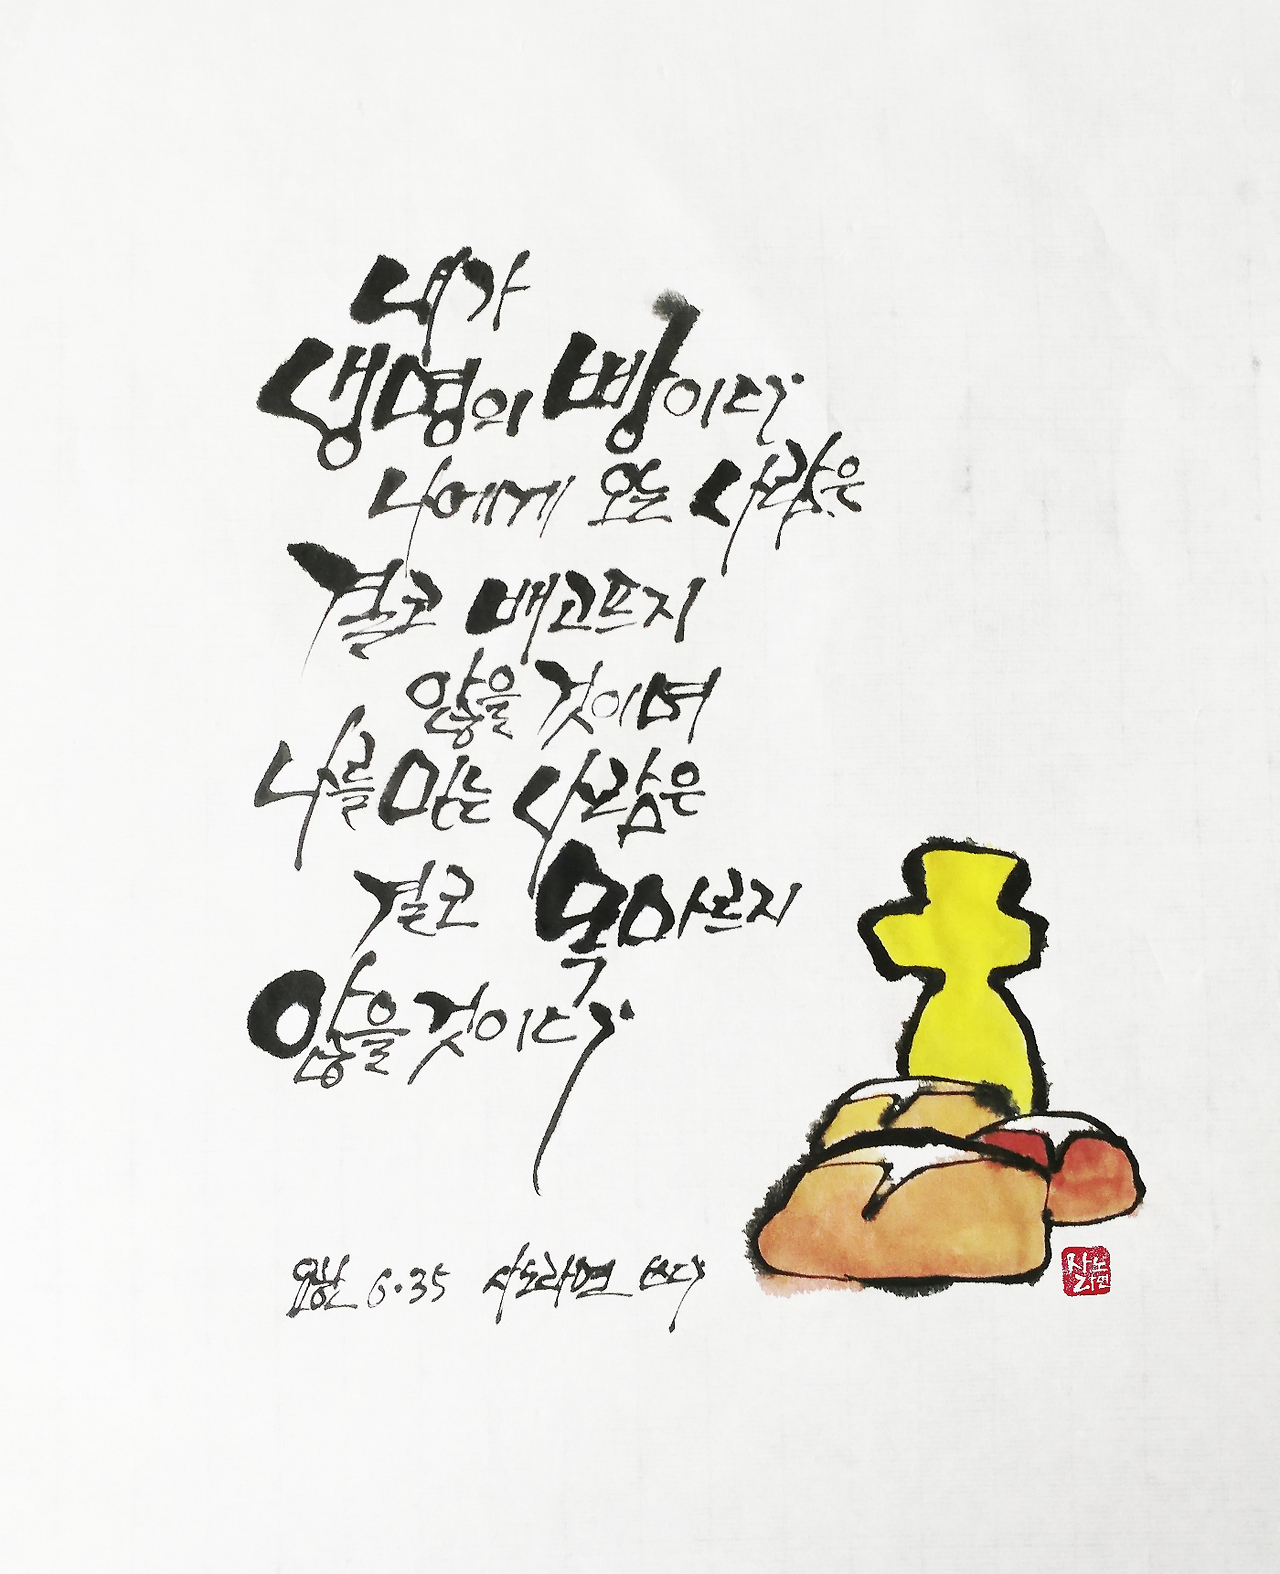 내가
생명의 빵이다
나에게 오는 사람은
결코 배고프지
않을 것이며
나를 믿는 사람은
결코 목마르지
않을 것이다
요한 6.35 사노라면 쓰다
사노
라면